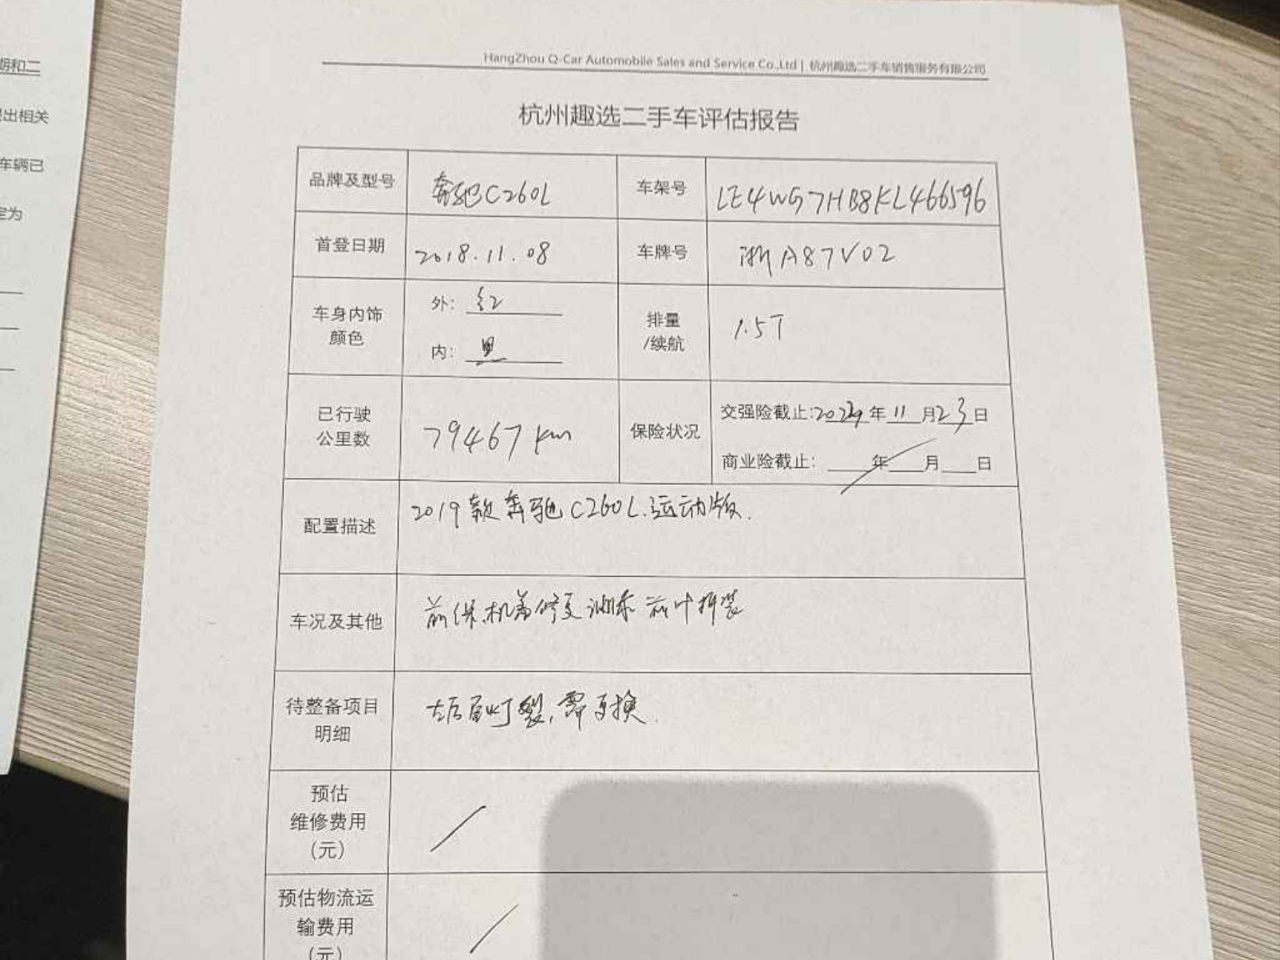 期和二
出相关
车辆已
定为
HangZhou Q-Car Automobile Sales and Service Co.,Ltd | 杭州趣选二手车销售服务有限公司
杭州趣选二手车评估报告
品牌及型号 奔驰C260L 车架号 LE4WG7HB8KL466596
首登日期 2018.11.08 车牌号 浙A87V02
车身内饰
颜色
外: 红
内: 黑
排量
/续航
1.5T
已行驶
公里数
79467km
保险状况
交强险截止: 年11月23日
商业险截止: 年 月 日
配置描述 2019款奔驰C260L.运动版.
车况及其他 前保.机盖修复 前叶拆装
待整备项目
明细
左后尾灯裂,需更换.
预估
维修费用
(元)
/
预估物流运
输费用
(元)
/